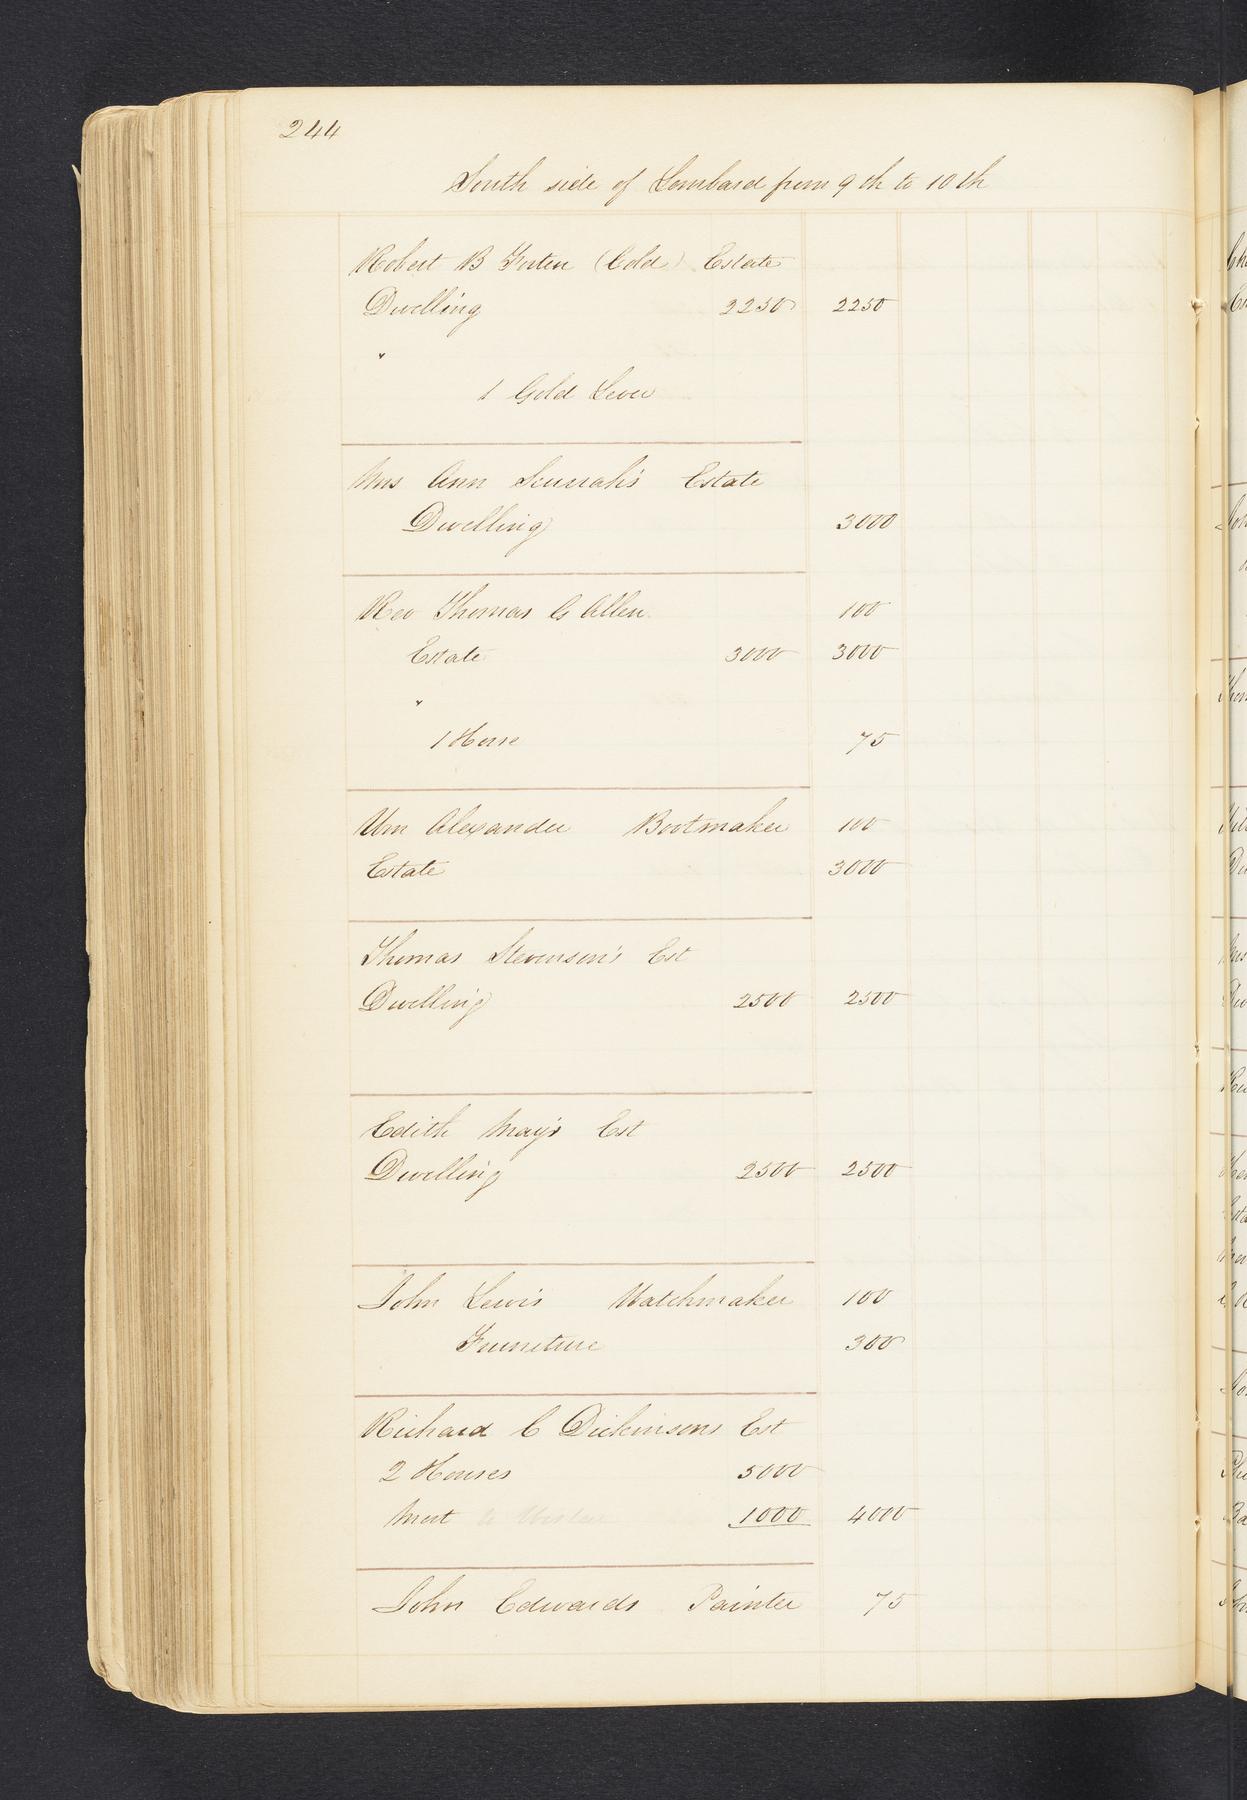 244
South side of Lombard from 9th to 10th
Robert B Forten (Cold) Estate
Dwelling 2250 2250
"
1 Gold Lever
Mrs Ann Estate
Dwelling 3000
Rev Thomas G Allen 100
Estate 3000 3000
"
1 Horse 75
Wm Alexander Bootmaker 100
Estate 3000
Thomas Stevenson's Est
Dwelling 2500 2500
Edith May's Est
Dwelling 2500 2500
John Lewis Watchmaker 100
Furneture 300
Richard C Dickinsons Est
2 Houses 5000
Mort 1000 4000
John Edwards Painter 75